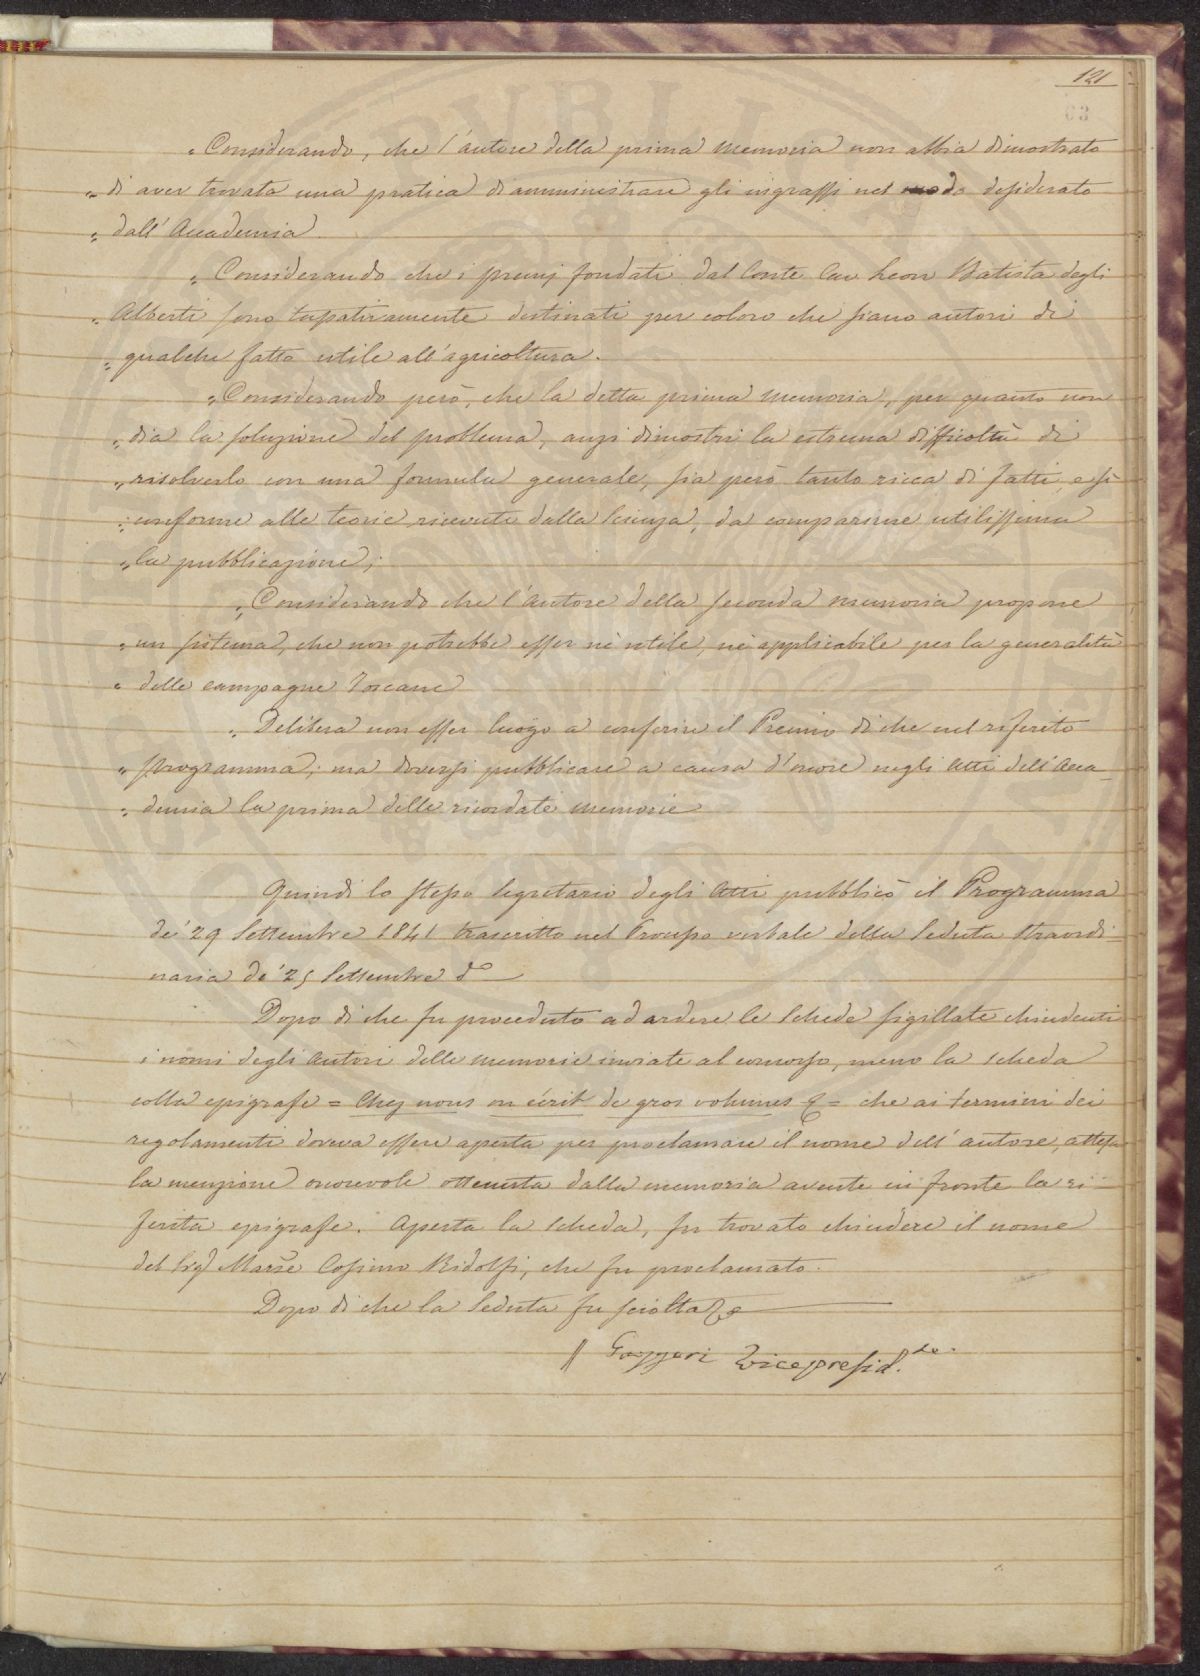 121
„ Considerando, che l'autore della prima memoria non abbia dimostrato
„ di aver trovata una pratica di amministrare gli ingrassi nel modo desiderato
„ dall'Accademia
„ Considerando che i premj fondati dal Conte Cav Leon Batista degli
„ Alberti sono tassativamente destinati per coloro che siano autori di
„ qualche fatto utile all'agricoltura.
„ Considerando però, che la detta prima memoria, per quanto non
„ dia la soluzione del problema, anzi dimostri la estrema difficoltà di
„ risolverlo con una formula generale, sia però tanto ricca di fatti, e sì
„ uniforme alle teorie ricevute dalla Scienza, da comparirne utilissima
„ la pubblicazione;
„ Considerando che l'Autore della seconda memoria propone
„ un sistema, che non potrebbe esser nè utile, nè applicabile per la generalità
„ delle campagne Toscane
„ Delibera non esser luogo a conferire il Premio di che nel riferito
„ programma; ma doversi pubblicare a causa d'onore negli Atti dell'Acca-
„ demia la prima delle ricordate memorie
Quindi lo stesso Segretario degli Atti pubblicò il Programma
de' 29 Settembre 1841 trascritto nel Processo verbale della Seduta straordi-
naria de' 25 Settembre do
Dopo di che fu proceduto ad ardere le Schede sigillate chiudenti
i nomi degli Autori delle memorie inviate al concorso, meno la scheda
colla epigrafe = Chez nous on écrit de gros volumes & = che ai termini dei
regolamenti doveva essere aperta per proclamare il nome dell'autore, attesa
la menzione onorevole ottenuta dalla memoria avente in fronte la ri-
ferita epigrafe. Aperta la Scheda, fu trovato chiudere il nome
del Sig Marse Cosimo Ridolfi, che fu proclamato.
Dopo di che la Seduta fu sciolta
Gazzeri Vicepresid.te